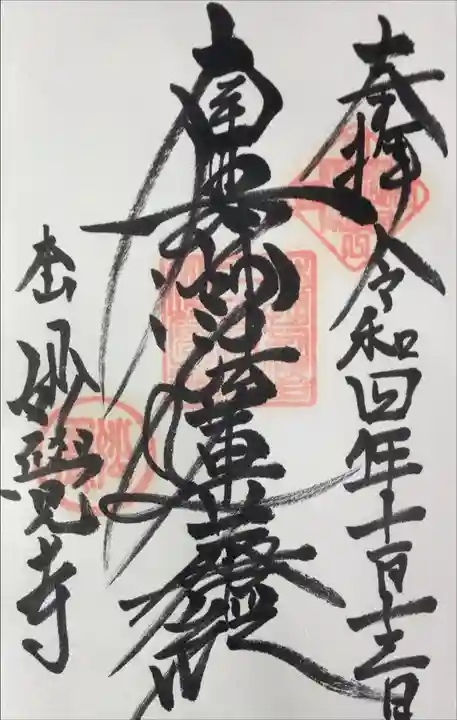 奉拝 令和四年十一月十三日
南無妙法蓮華經
本山 妙覺寺